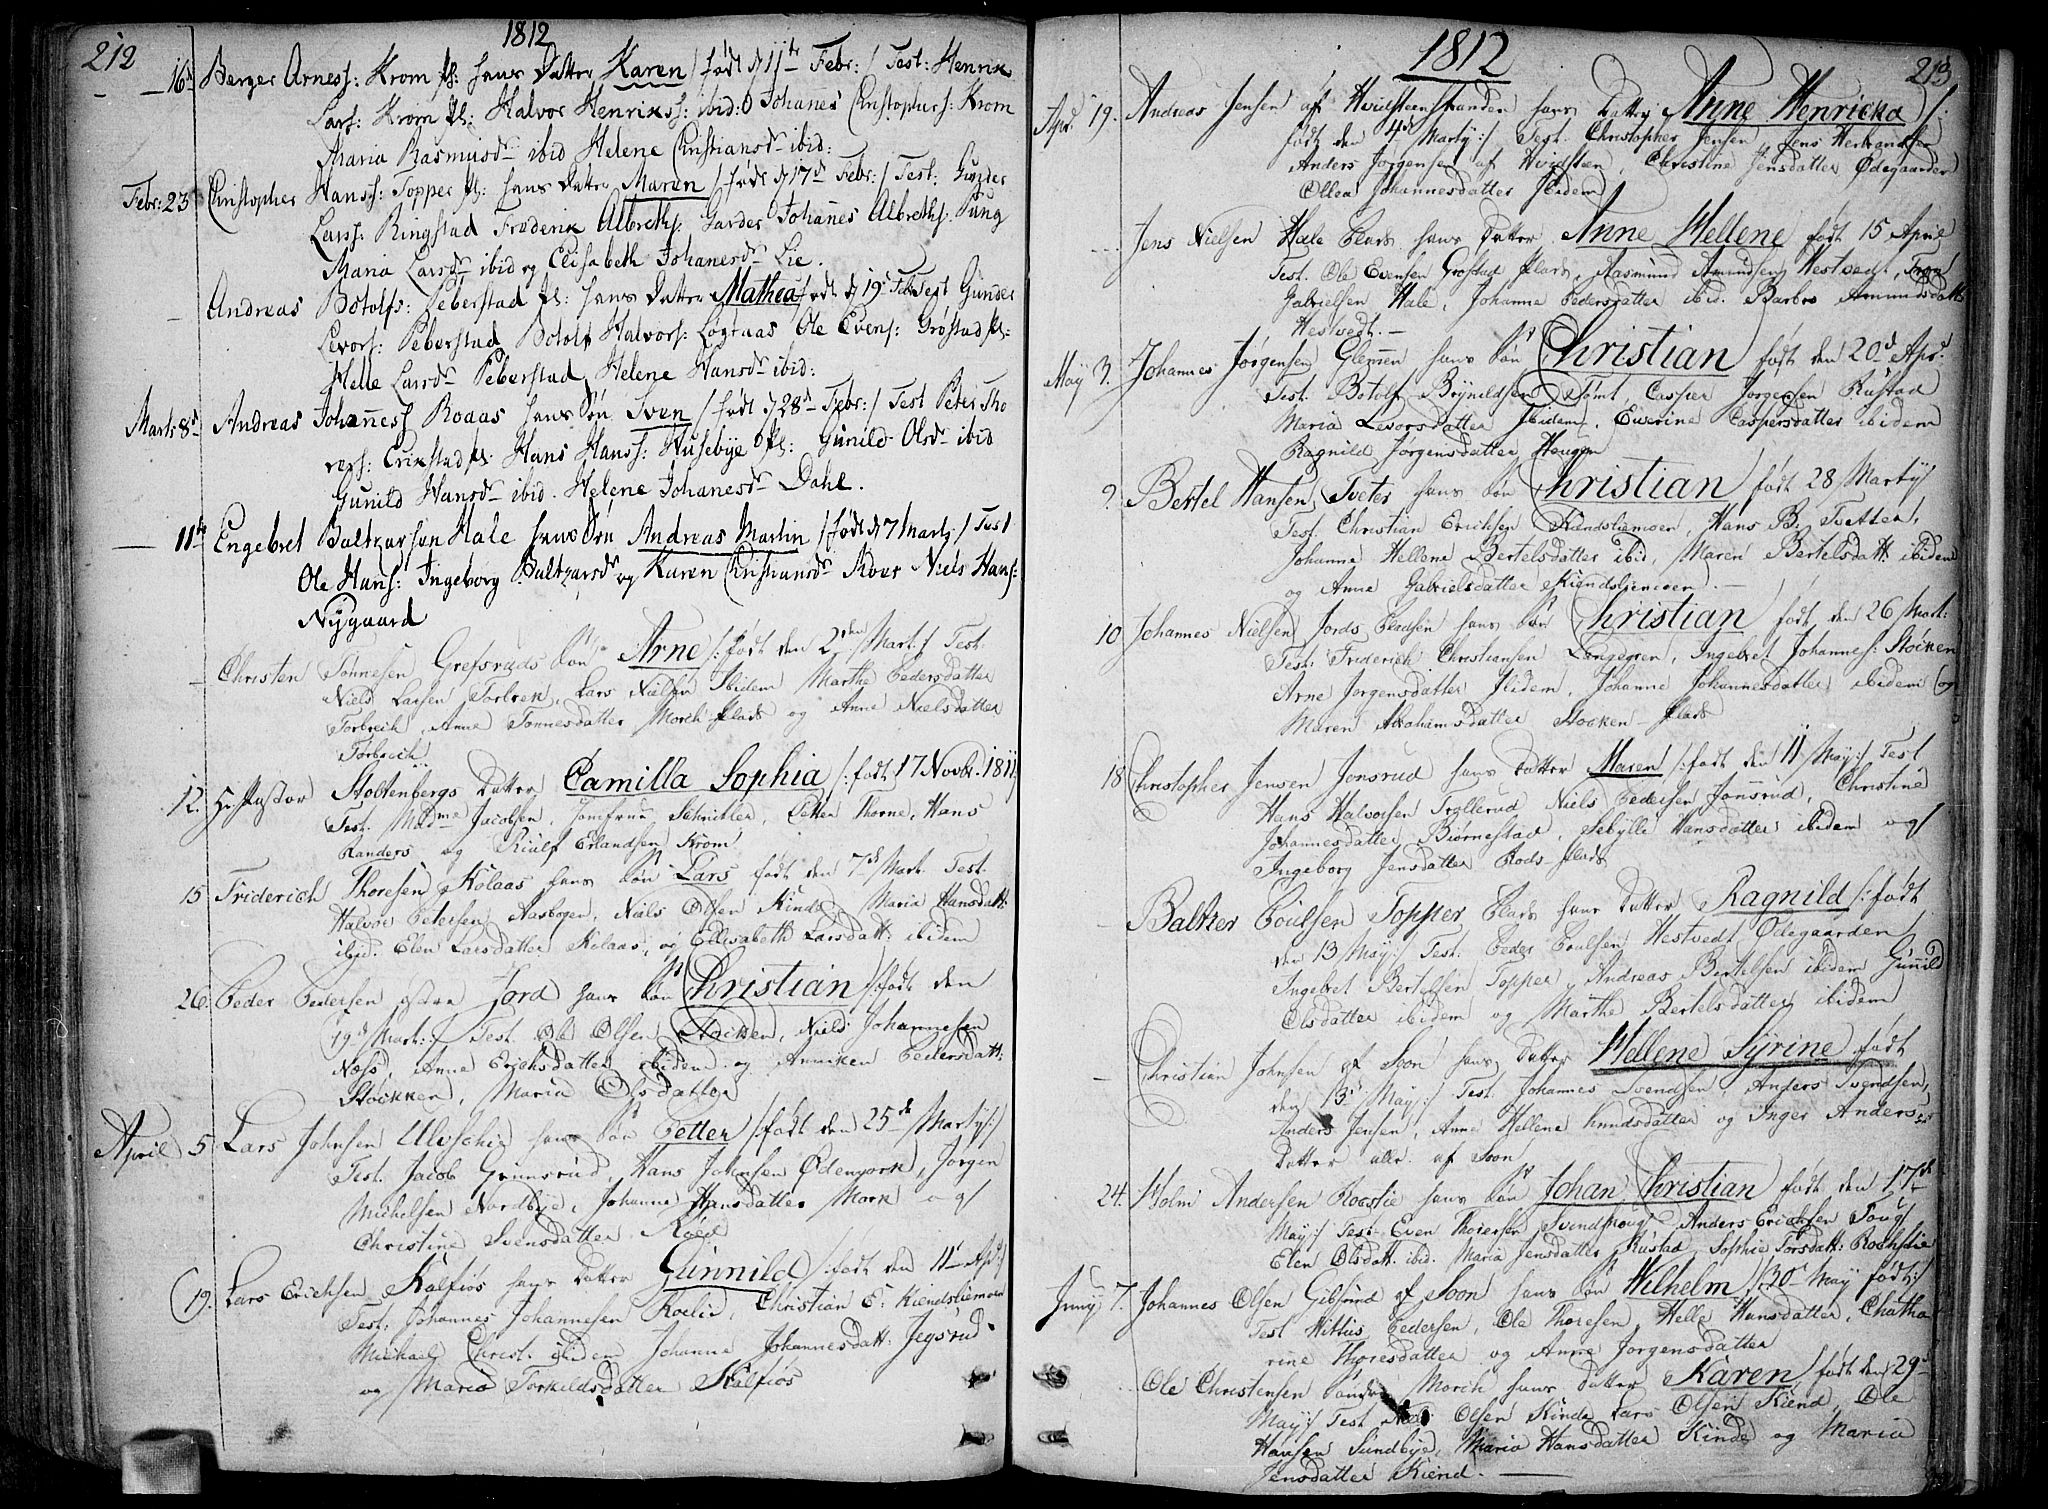 212
1812
16d Berger Arness: Krom Pl: hans Datter Karen / født d 11te Febr: / Test: Henrik
Larss: Krom Pl: Halvor Henrikss: ibid: Johanes Christophers: Krom
Maria Rasmusdr ibid Helene Christiansdr ibid:
Febr: 23 Christopher Hanss: Topper Pl: hans Datter Maren / født d 17d Febr: / Test: Gunder
Larss: Ringstad Frederik Albreths: Garder Johannes Albreths: Pung
Maria Larsdr ibid og Elisabeth Johanesdr Lie.
Andreas Botolfs: Peberstad Pl: hans Datter Mathea / født d 19 Feb Test Gunder
Levors: Peberstad Botolf Halvors: Løgtaas Ole Evens: Grøstad Pl:
Helle Larsdr Peberstad, Helene Hansdr ibid:
Marts 8d Andreas Johanness Roaas hans Søn Sven / født d 28d Febr: / Test Peter Tho
ress: Erikstad Pl: Hans Hanss: Husebye Pl: Gunild Olsdr ibid
Gunild Hansdr ibid. Helene Johanesdr Dahl.
11te Engebret Baltzarsen Hale hans Søn Andreas Martin / født d 7 Marts / Test
Ole Hans: Ingeborg Baltzarsdr og Karen Christiansdr Niels Hans:
Nygaard
Christen Tønnesen Grefsruds Søn Arne /: født den 2den Mart: / Test.
Niels Larsen Torbrek, Lars Nielsen Ibidem Marthe Pedersdatter
Torbreck, Anne Tønnesdatter Morch Plads og Anne Nielsdatter
Torbrech.
12. Hr Pastor Stoltenbergs Datter Camilla Sophia /: født 17 Novbr. 1811
Test. Madme Jacobsen, Jomfrue Schnitler, Petter Thorne, Hans
Randers og Rialf Erlandsen Krom
15 Friderich Thoresen Kolaas hans Søn Lars født den 7de Mart. Test.
Halvor Petersen Aasbogen, Niels Olsen Kinde Maria Hansdatt:
ibid. Elen Larsdatter Kolaas, og Ellisabeth Larsdatt: ibidem
26. Peder Pedersen østre Jord hans Søn Christian /: født den
19d Mart: / Test. Ole Olsen Stocken, Niels Johannesen
Næss, Anne Erichsdatter ibidem og Anniken Pedersdatt:
Støkken, Maria Olsdatter
April 5 Lars Johnsen Ulvschie hans Søn Petter /: født den 25de Marty: /
Test. Jacob Grimsrud, Hans Johnsen Ødemork, Jørgen
Michelsen Nordbye, Johanne Hansdatter Mork og
Christine Svensdatter Røed
19. Lars Erichsen Kalfiøs hans Datter Gunnild /: født den 11t Apr: /
Test: Johannes Johannesen Roelie, Christian E: Kiendsliemoen
Michael Christ. ibidem Johanne Johannesdatt: Jegsrud
og Maria Torkildsdatter Kalfiøs
1812
213
Apr. 19. Andreas Jensen af Hvidsteen stranden hans Datter Anne Henricka /:
født den 4d Marty: / Test. Christopher Jensen Jens Herbrandsen
Anders Jørgensen af Hvidsteen, Christine Jensdatter Ødegaarden
Ollea Johannesdatter Ibidem
Jens Nielsen Hale Plads hans Datter Anne Hellene født 15 April
Test. Ole Evensen Grøstad Plads, Rasmund Amundsen Hestvedt,
Gabrielsen Hale, Johanne Pedersdatter ibid. Barbro Amundsdatter
Hestvedt. —
May 3. Johannes Jørgensen Glenne hans Søn Christian født den 20d Apr.
Test. Botolf Brynildsen Tømt, Casper Jørgensen Rustad
Maria Levorsdatter Ibidem, Everine Caspersdatter ibidem
Ragnild Jørgensdatter Haugen
9 Bertel Hansen Tveter hans Søn Christian født 28 Marty
Test. Christian Erichsen Kiendsliemoen, Hans B. Tvetter,
Johanne Hellene Bertelsdatter ibid, Maren Bertelsdatt: ibidem
og Anne Gabrielsdatter Kiendsliemoen. —
10 Johannes Nielsen Jords Pladsen hans Søn Christian født den 26 Mart:
Test. Friderich Christiansen Langegren, Ingebret Johannes: Støcken
Arne Jørgensdatter Ibidem, Johanne Johannesdatter ibidem og
Maren Abrahamsdatter Stocken Plads
18 Christopher Jensen Jonsrud hans Datter Maren /: født den 11 May: / Test
Hans Halvorsen Trollerud Niels Pedersen Jonsrud, Christine
Johannesdatter Biørnestad, Sebylle Hansdatter ibidem og
Ingeborg Jensdatter Rods Plads
Baltzer Poulsen Topper Plads hans Datter Ragnild /: født
den 13 May: / Test. Peder Poulsen Hestvedt Ødegaarden
Ingebret Bertelsen Topper Andreas Bertelsen ibidem Gunild
Olsdatter ibidem og Marthe Bertelsdatter ibidem
Christian Johnsen af Soon hans Datter Hellene Syrine født
den 13d May: / Test. Johannes Svendsen, Anders Svendsen,
Anders Jensen, Anne Hellene Knudsdatter og Inger Anders
Datter alle af Soon
24. Holm Andersen Roestie hans Søn Johan Christian født den 17de
May: / Test. Even Thoresen Svindhoug Anders Erichsen Toug
Elen Olsdatt. ibid. Maria Jensdatter Rustad, Sophie Torsdatt: Rochstie
Juny 7. Johannes Olsen Gibsund af Soon hans Søn Wilhelm /: 30t May født: /
Test Hittius Pedersen, Ole Thoresen, Helle Hansdatter, Chatha
rine Thoresdatter og Anne Jørgensdatter
Ole Christensen Morch hans Datter Karen / født den 29
May: / Test Niels Olsen Kinde Lars Olsen Kiend, Ole
Hansen Sundbye, Maria Hansdatter Kinde og Maria
Jensdatter Kiend. —